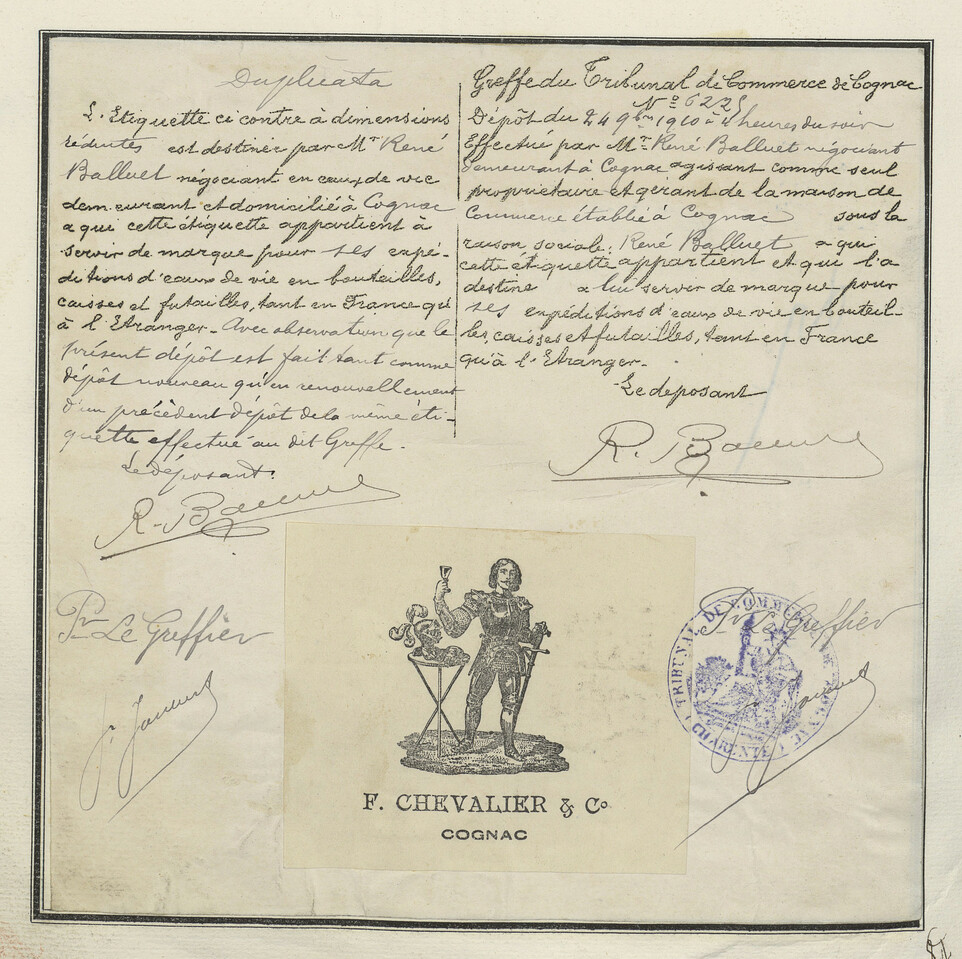 Duplicata
L'Etiquette ci contre à dimensions
réduites est destinée par Mr René
Balluet négociant en eaux de vie
demeurant et domicilié à Cognac
a qui cette étiquette appartient à
servir de marque pour ses expé-
ditions d'eaux de vie en bouteilles,
caisses et futailles, tant en France qu'
à l'Etranger - Avec observation que le
présent dépôt est fait tant comme
dépôt nouveau qu'en renouvellement
d'un précédent dépôt de la même éti-
quette effectué au dit Greffe.
Le déposant.
R. Balluet
Pr Le Greffier
Greffe du Tribunal de Commerce de Cognac
No 622
Dépôt du 24 9bre 1910 à 4 heures du soir
Effectué par Mr René Balluet négociant
demeurant à Cognac agissant comme seul
propriétaire et gérant de la maison de
Commerce établie à Cognac sous la
raison sociale: René Balluet a qui
cette étiquette appartient et qui l'a
destine a lui servir de marque pour
ses expéditions d'eaux de vie en bouteil-
les, caisses et futailles, tant en France
qu'à l'Etranger.
Le deposant
R. Balluet
Pr Le Greffier
TRIBUNAL DE COMMERCE DE COGNAC
CHARENTE
F. CHEVALIER & Co
COGNAC